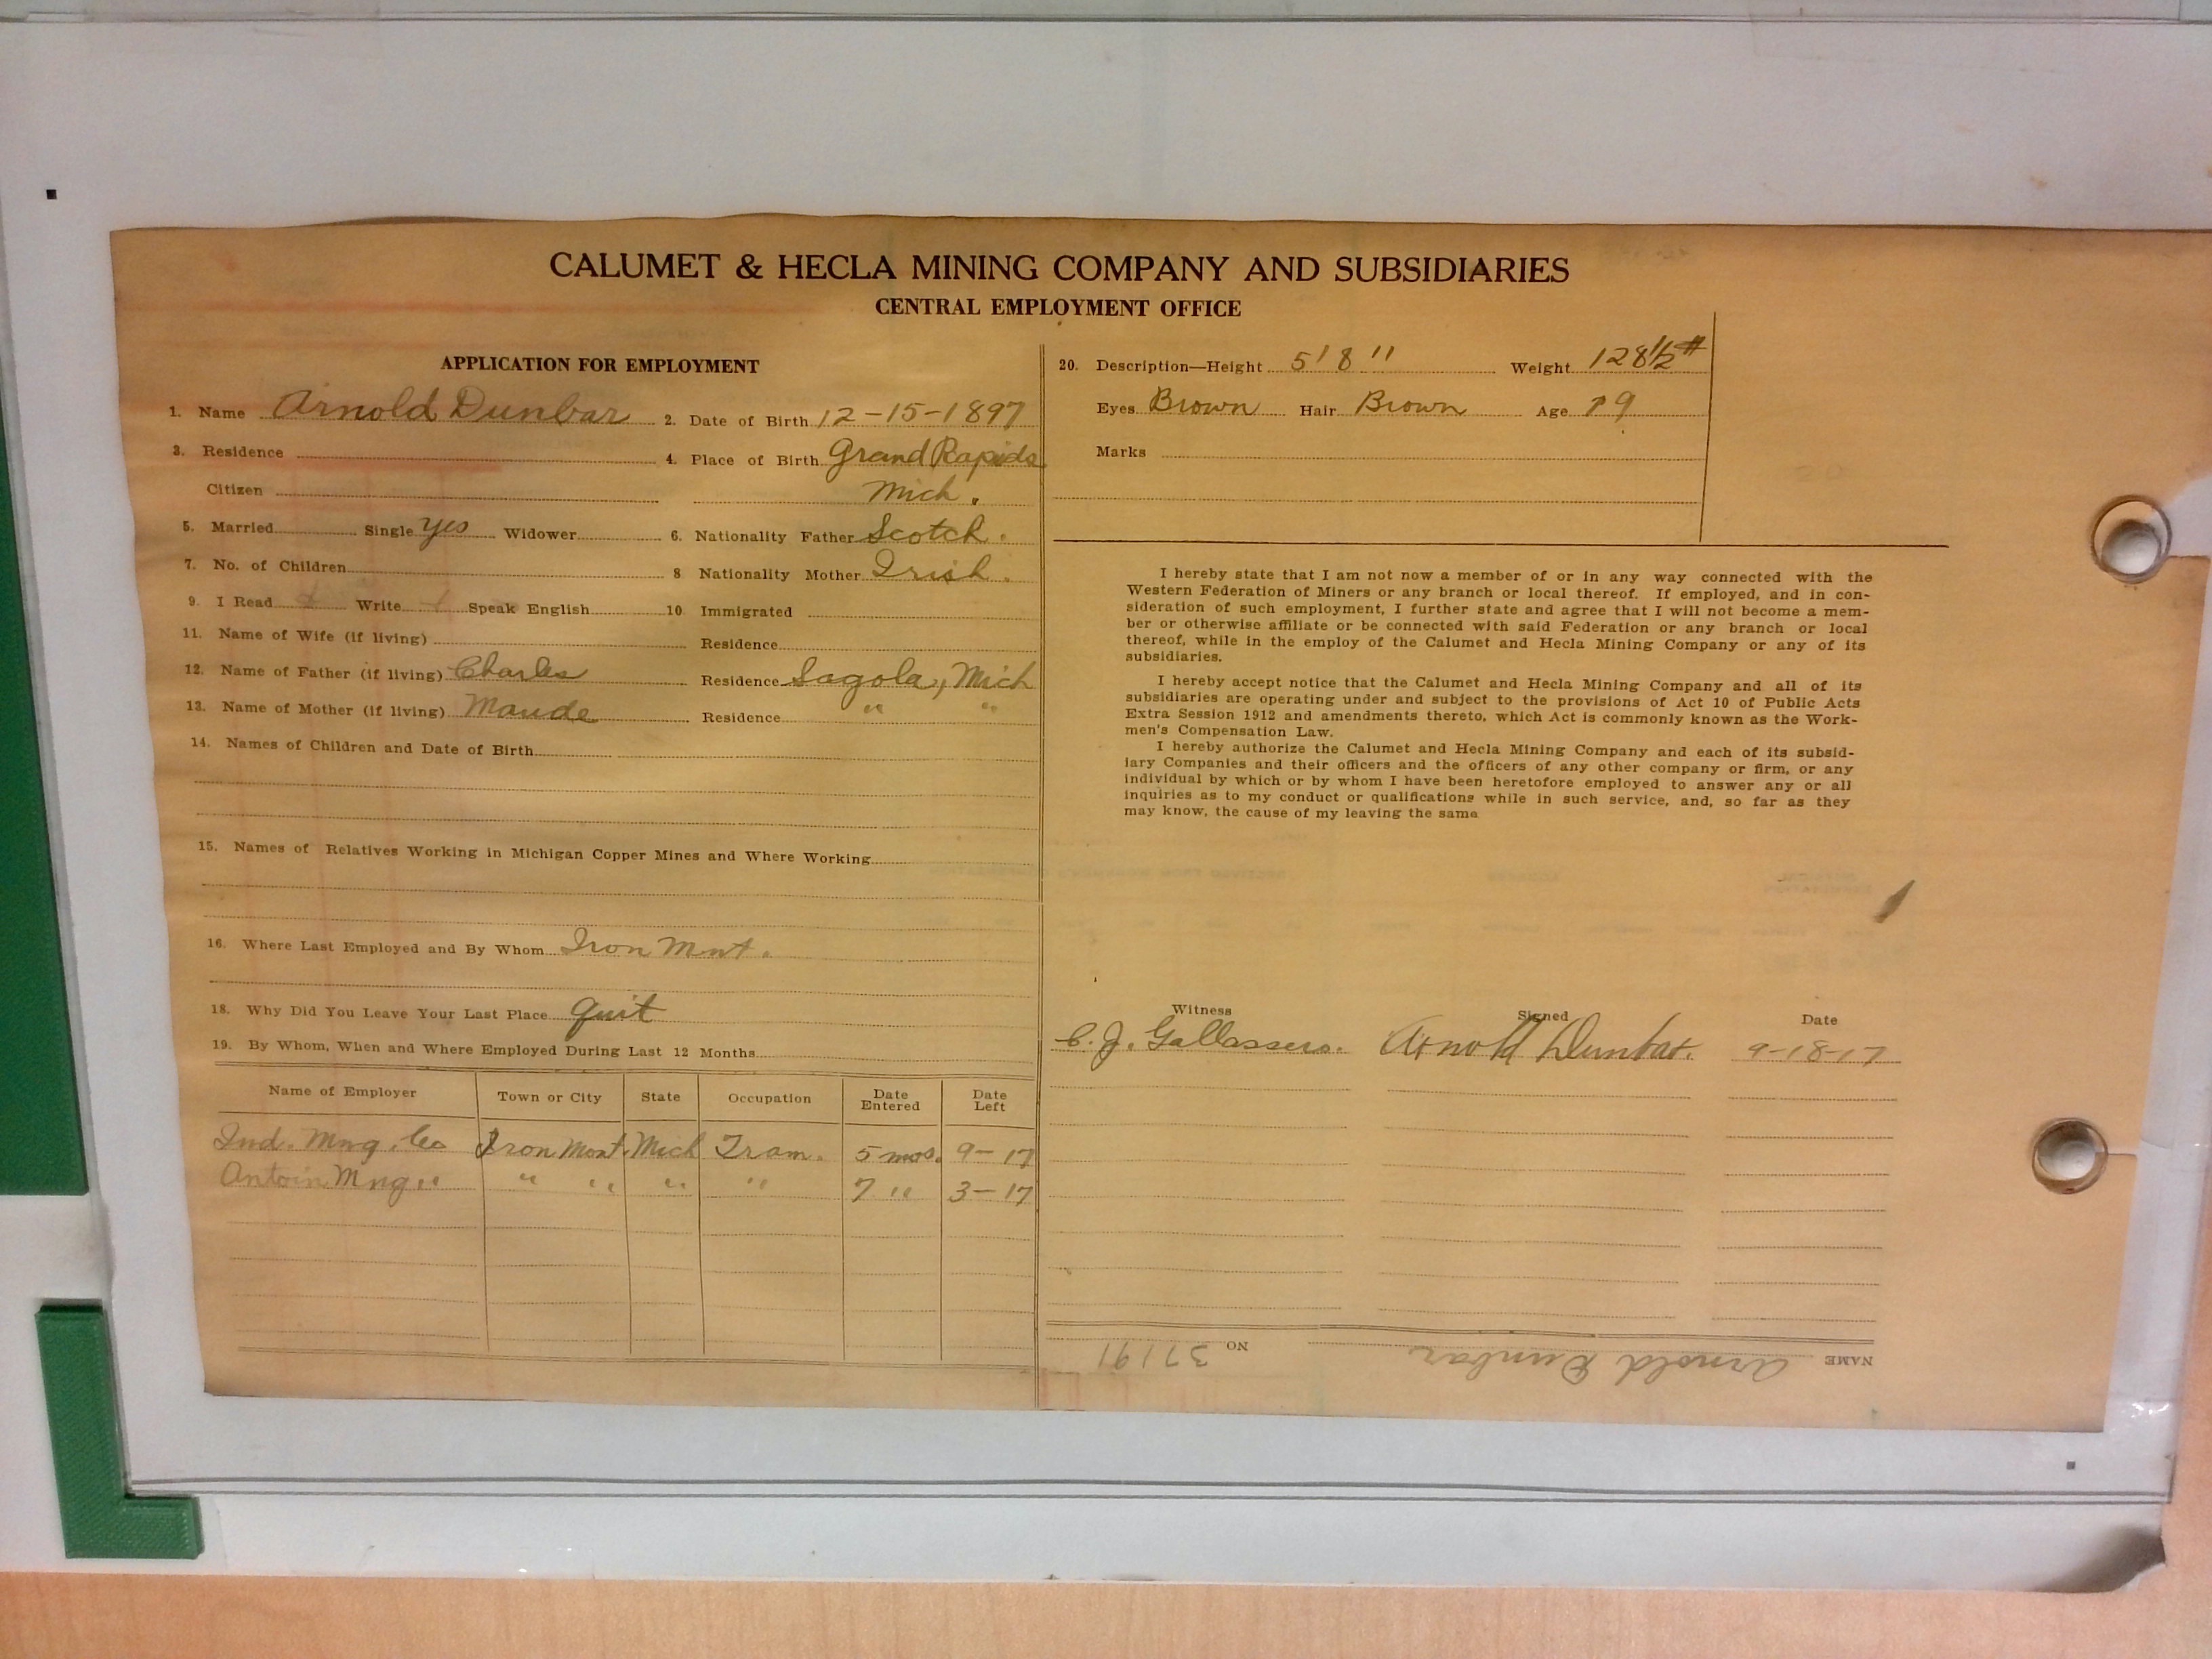 CALUMET & HECLA MINING COMPANY AND SUBSIDIARIES
CENTRAL EMPLOYMENT OFFICE
APPLICATION FOR EMPLOYMENT
1. Name Arnold Dunbar 2. Date of Birth 12-15-1897
3. Residence 4. Place of Birth Grand Rapids
Citizen Mich.
5. Married Single yes Widower 6. Nationality Father Scotch.
7. No. of Children 8 Nationality Mother Irish.
9. I Read Write Speak English 10. Immigrated
11. Name of Wife (if living) Residence
12. Name of Father (if living) Charles Residence Sagola, Mich
13. Name of Mother (if living) Maude Residence " "
14. Names of Children and Date of Birth
15. Names of Relatives Working in Michigan Copper Mines and Where Working
16. Where Last Employed and By Whom Iron Mnt.
18. Why Did You Leave Your Last Place quit
19. By Whom, When and Where Employed During Last 12 Months
Name of Employer Town or City State Occupation Date Entered Date Left
Ind. Mng. Co Iron Mont. Mich Tram. 5 mos. 9-17
Antoin Mng " " " " " 7 " 3-17
20. Description—Height 5' 8" Weight 128 1/2 #
Eyes Brown Hair Brown Age 19
Marks
I hereby state that I am not now a member of or in any way connected with the
Western Federation of Miners or any branch or local thereof. If employed, and in con-
sideration of such employment, I further state and agree that I will not become a mem-
ber or otherwise affiliate or be connected with said Federation or any branch or local
thereof, while in the employ of the Calumet and Hecla Mining Company or any of its
subsidiaries.
I hereby accept notice that the Calumet and Hecla Mining Company and all of its
subsidiaries are operating under and subject to the provisions of Act 10 of Public Acts
Extra Session 1912 and amendments thereto, which Act is commonly known as the Work-
men's Compensation Law.
I hereby authorize the Calumet and Hecla Mining Company and each of its subsid-
iary Companies and their officers and the officers of any other company or firm, or any
individual by which or by whom I have been heretofore employed to answer any or all
inquiries as to my conduct or qualifications while in such service, and, so far as they
may know, the cause of my leaving the same
Witness Signed Date
Arnold Dunbar. 9-18-17
NAME Arnold Dunbar NO 37191